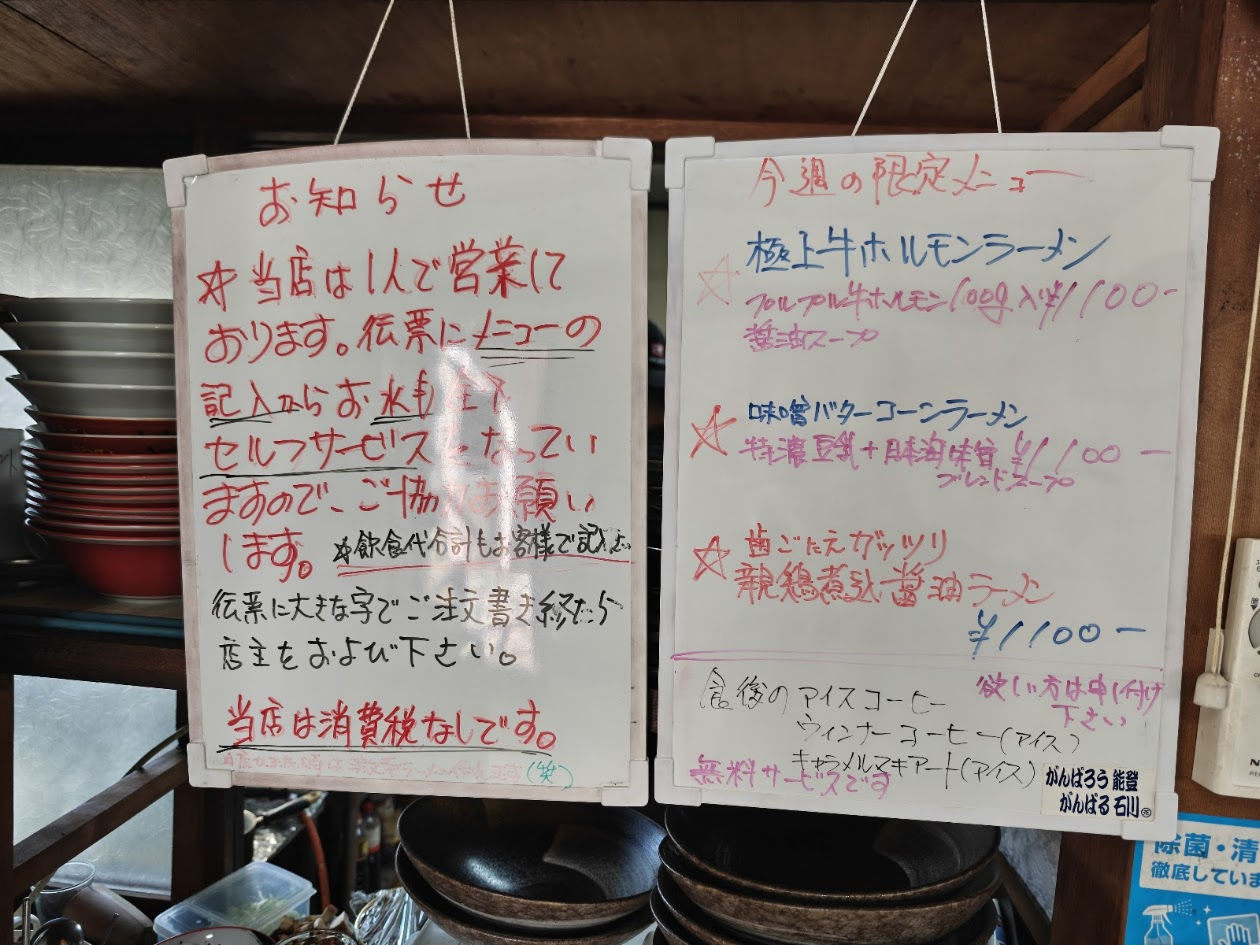 お知らせ
☆当店は1人で営業して
おります。伝票にメニューの
記入からお水も全て
セルフサービスとなってい
ますので、ご協力お願い
します。☆飲食代合計もお客様で記入を
伝票に大きな字でご注文書き終えたら
店主をおよび下さい。
当店は消費税なしです。
(笑)
今週の限定メニュー
☆極上牛ホルモンラーメン
プルプル牛ホルモン100g入 ¥1100-
醤油スープ
☆味噌バターコーンラーメン
特濃豆乳+北海味噌 ¥1100-
ブレンドスープ
☆歯ごたえガッツリ
親鶏煮込醤油ラーメン
¥1100-
食後のアイスコーヒー
ウィンナーコーヒー(アイス)
キャラメルマキアート(アイス)
無料サービスです
欲しい方は申し付け
下さい!
がんばろう 能登
がんばる 石川
除菌・清
徹底していま